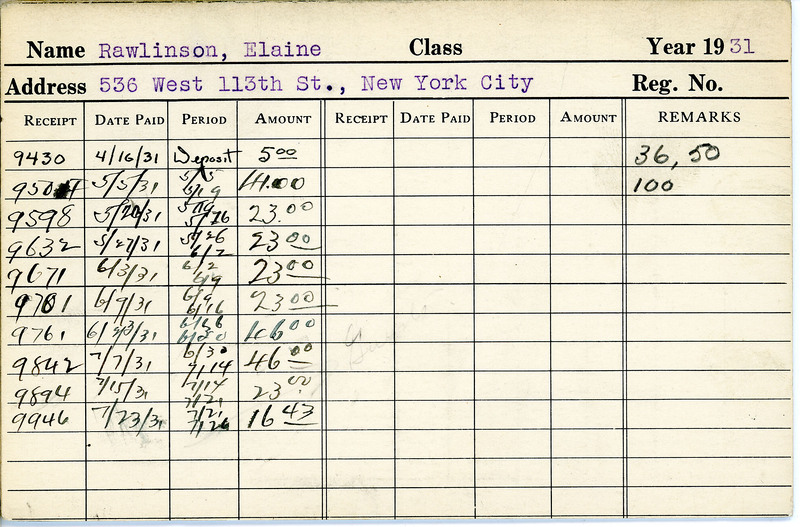 Name Rawlinson, Elaine Class Year 1931
Address 536 West 113th St., New York City Reg. No.
RECEIPT DATE PAID PERIOD AMOUNT RECEIPT DATE PAID PERIOD AMOUNT REMARKS
9430 4/16/31 Deposit 5.00 36, 50
5/5/31 5/5 5/19 41.00 100
9598 5/20/31 5/19 5/26 23.00
9632 5/27/31 5/26 6/2 23.00
9671 6/3/31 6/2 6/9 23.00
9701 6/9/31 6/9 6/16 23.00
9761 6/23/31 6/16 6/30 46.00
9842 7/7/31 6/30 7/14 46.00
9894 7/15/31 7/14 7/21 23.00
9946 7/23/31 7/21 7/26 16.43